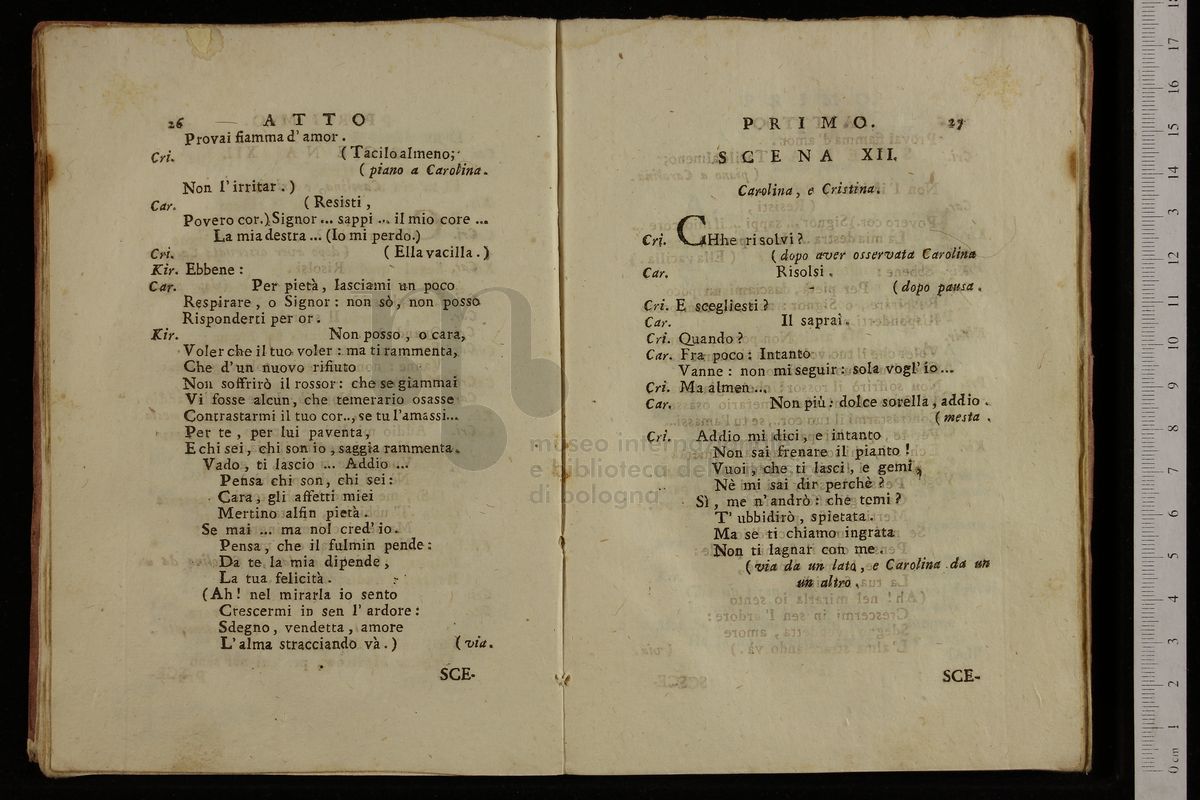 26 — ATTO
Provai fiamma d' amor.
Cri. (Tacilo almeno;
(piano a Carolina.
Non l' irritar.)
Car. (Resisti,
Povero cor.) Signor ... sappi ... il mio core ...
La mia destra ... (Io mi perdo.)
Cri. (Ella vacilla.)
Kir. Ebbene:
Car. Per pietà, lasciami un poco
Respirare, o Signor: non sò, non posso
Risponderti per or.
Kir. Non posso, o cara,
Voler che il tuo voler: ma ti rammenta,
Che d' un nuovo rifiuto
Non soffrirò il rossor: che se giammai
Vi fosse alcun, che temerario osasse
Contrastarmi il tuo cor.., se tu l'amassi...
Per te, per lui paventa,
E chi sei, chi son io, saggia rammenta.
Vado, ti lascio ... Addio ...
Pensa chi son, chi sei:
Cara, gli affetti miei
Mertino alfin pietà.
Se mai ... ma nol cred' io.
Pensa, che il fulmin pende:
Da te la mia dipende,
La tua felicità.
(Ah! nel mirarla io sento
Crescermi in sen l' ardore:
Sdegno, vendetta, amore
L' alma stracciando và.) (via.
SCE-
PRIMO. 27
SCENA XII.
Carolina, e Cristina.
Cri. CHhe risolvi?
(dopo aver osservata Carolina
Car. Risolsi.
(dopo pausa.
Cri. E scegliesti?
Car. Il saprai.
Cri. Quando?
Car. Fra poco: Intanto
Vanne: non mi seguir: sola vogl' io...
Cri. Ma almen ...
Car. Non più: dolce sorella, addio.
(mesta.
Cri. Addio mi dici, e intanto
Non sai frenare il pianto!
Vuoi, che ti lasci, e gemi,
Nè mi sai dir perchè?
Sì, me n' andrò: che temi?
T' ubbidirò, spietata.
Ma se ti chiamo ingrata
Non ti lagnar con me.
(via da un lato, e Carolina da un
un altro.
SCE-
museo internazionale
e biblioteca della musica
di bologna